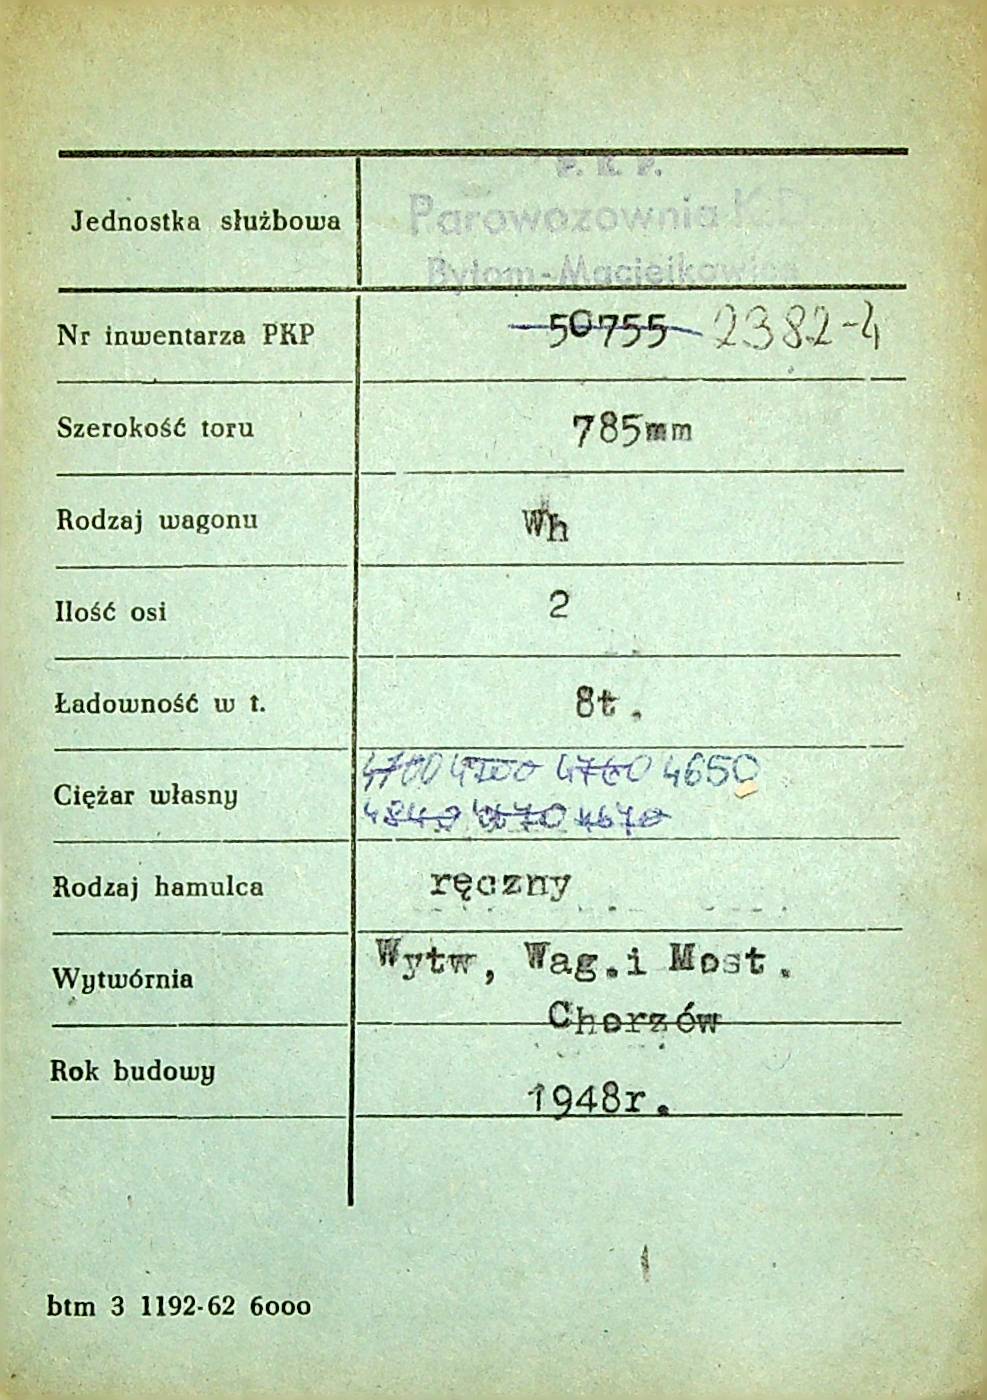 P. K. P.
Jednostka służbowa Parowozownia K.D.
Bytom-Maciejkowice
Nr inwentarza PKP 50755 2382-4
Szerokość toru 785mm
Rodzaj wagonu Wh
Ilość osi 2
Ładowność w t. 8t.
4700 4700 4760 4650
Ciężar własny
4840 4670 4670
Rodzaj hamulca ręczny
Wytwórnia Wytw, Wag.i Most.
Chorzów
Rok budowy 1948r.
btm 3 1192-62 6000